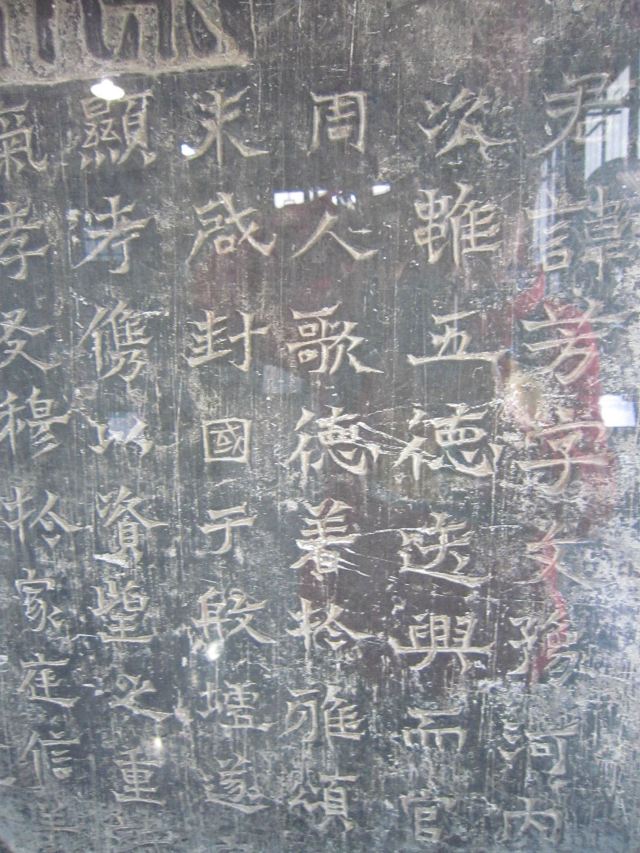 君諱芳字文豫河內
次雖五德迭興而官
周人歌德著於雅頌
末咸封國于殷墟遂
顯考儁以資望之重
氣孝友穆於家庭信